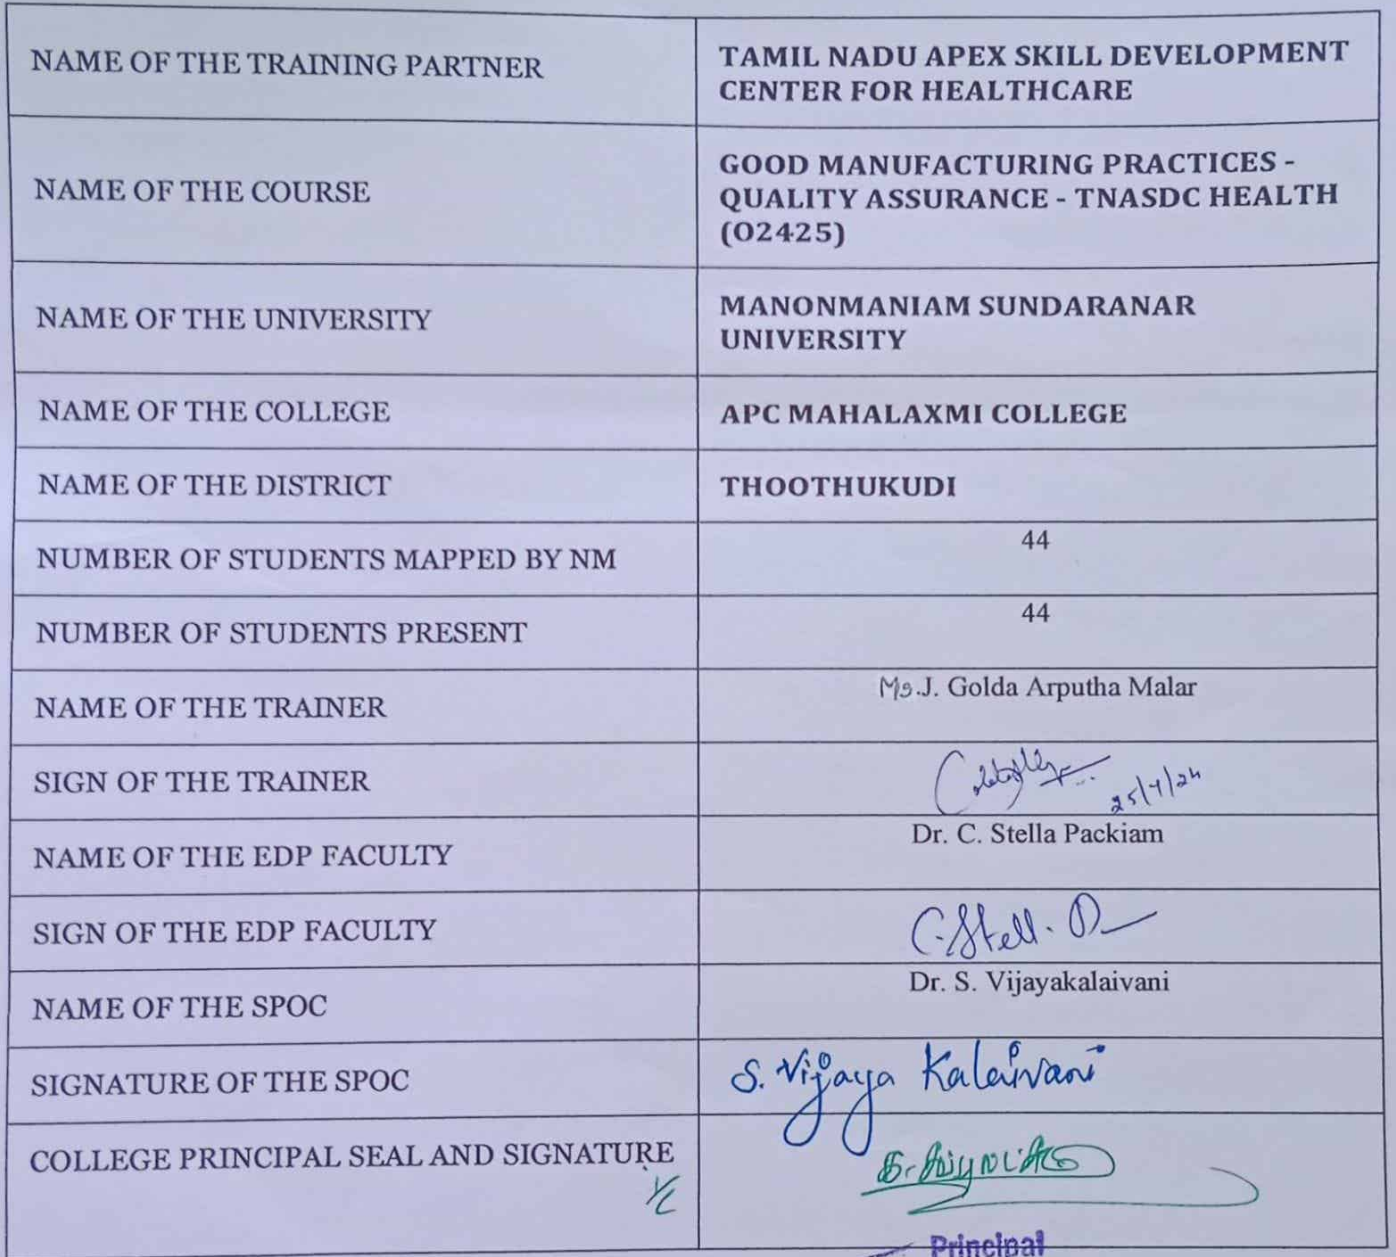 NAME OF THE TRAINING PARTNER
TAMIL NADU APEX SKILL DEVELOPMENT
CENTER FOR HEALTHCARE
NAME OF THE COURSE
GOOD MANUFACTURING PRACTICES -
QUALITY ASSURANCE - TNASDC HEALTH
(O2425)
NAME OF THE UNIVERSITY
MANONMANIAM SUNDARANAR
UNIVERSITY
NAME OF THE COLLEGE
APC MAHALAXMI COLLEGE
NAME OF THE DISTRICT
THOOTHUKUDI
NUMBER OF STUDENTS MAPPED BY NM
44
NUMBER OF STUDENTS PRESENT
44
NAME OF THE TRAINER
Ms.J. Golda Arputha Malar
SIGN OF THE TRAINER
NAME OF THE EDP FACULTY
Dr. C. Stella Packiam
SIGN OF THE EDP FACULTY
C. Stell.
NAME OF THE SPOC
Dr. S. Vijayakalaivani
SIGNATURE OF THE SPOC
S. Vijaya Kalaivani
COLLEGE PRINCIPAL SEAL AND SIGNATURE
Principal